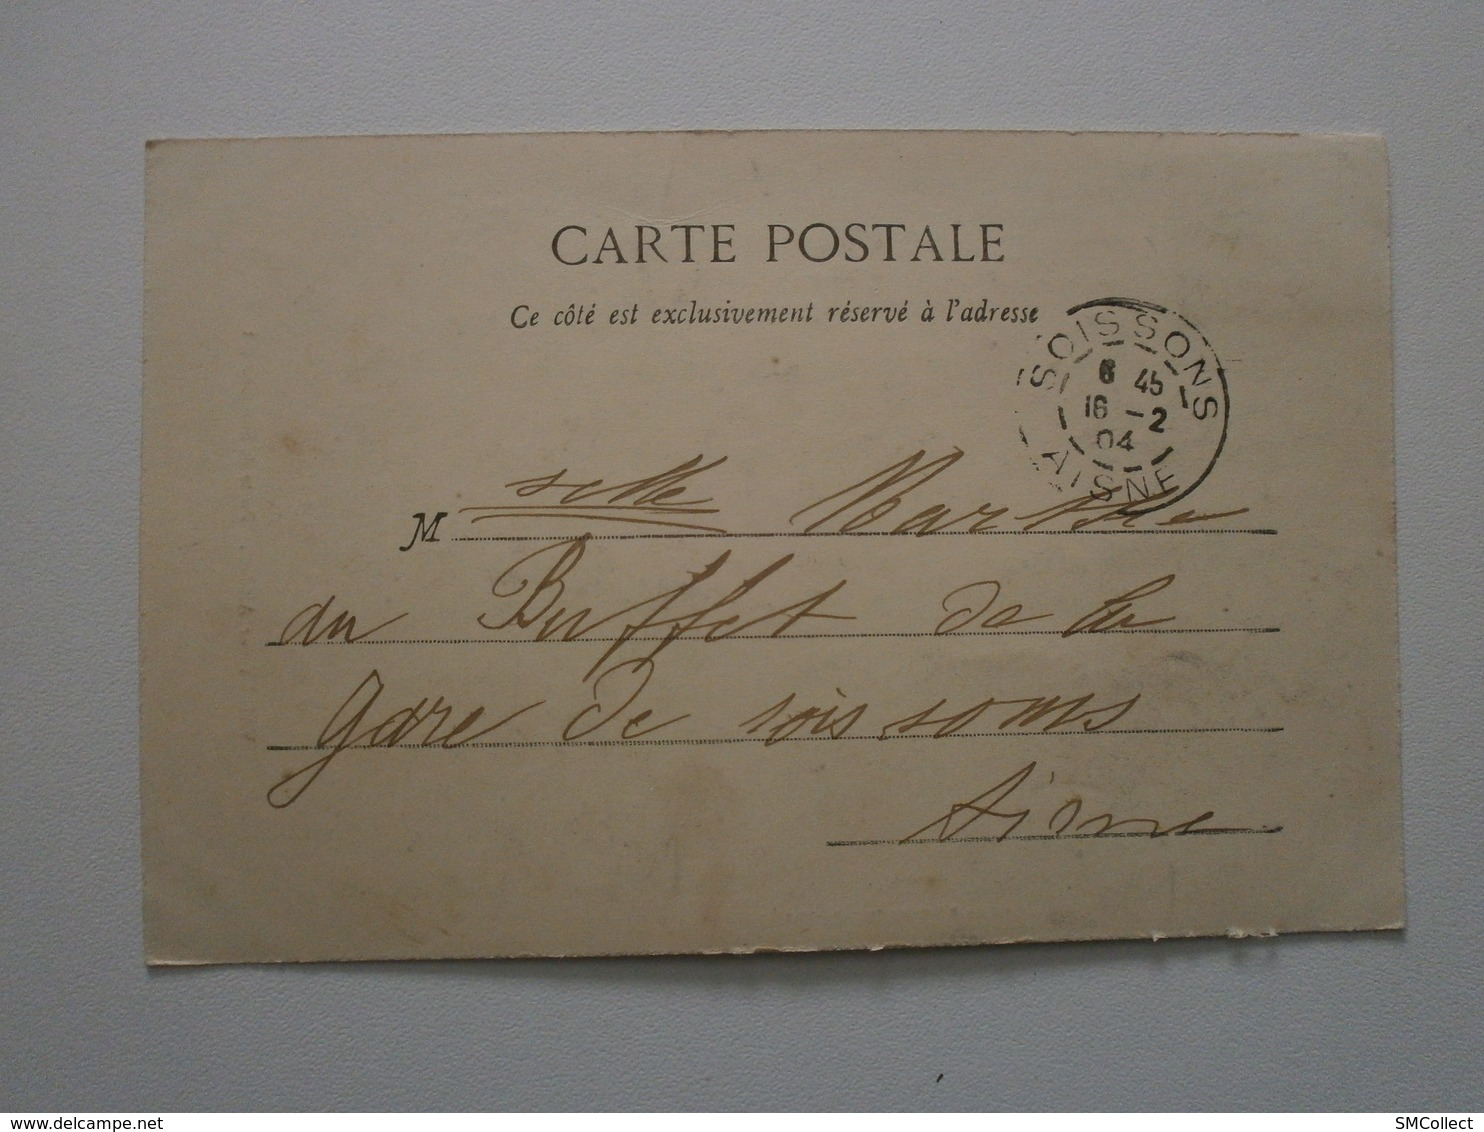 CARTE POSTALE
Ce côté est exclusivement réservé à l'adresse
SOISSONS
6 45
16 -2
04
AISNE
M selle Marthe
du Buffet de la
gare de soissons
Aisne
www.delcampe.net
SMCollect